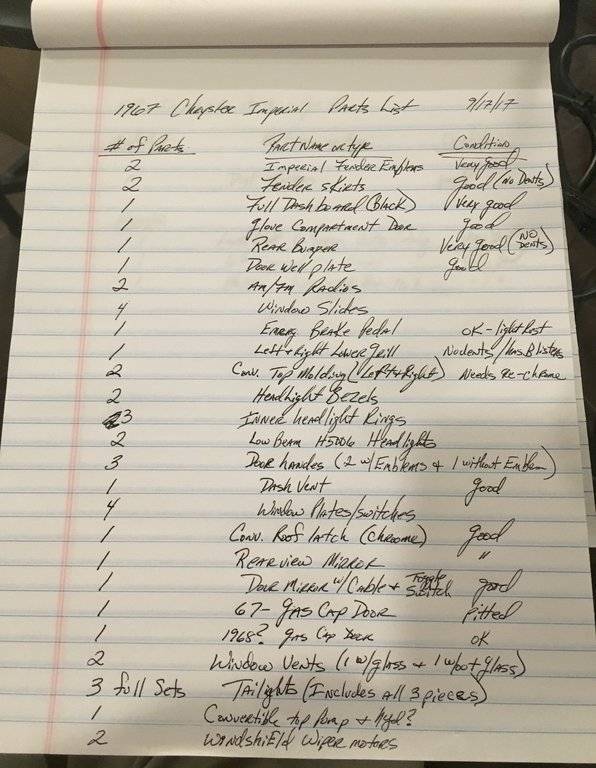 1967 Chrysler Imperial Parts List 9/17/17
# of Parts Part Name or type Condition
2 Imperial Fender Emblems Very good
2 Fender skirts good (No Dents)
1 Full Dashboard (Black) Very good
1 glove Compartment Door good
1 Rear Bumper Very good (No Dents)
1 Door Well plate good
2 AM/FM Radios
4 Window Slides
1 Emerg. Brake Pedal OK - light Rust
1 Left + Right Lower grill No dents / has Blisters
2 Conv. Top Molding (Left + Right) Needs Re-chrome
2 Headlight Bezels
3 Inner headlight Rings
2 Low Beam H5006 Headlights
3 Door handes (2 w/ Emblems + 1 without Emblem)
1 Dash Vent good
4 Window Plates/switches
1 Conv. Roof latch (Chrome) good
1 Rearview Mirror "
1 Door Mirror w/ Cable + Toggle Switch good
1 67- gas Cap Door Pitted
1 1968? gas Cap Door OK
2 Window Vents (1 w/glass + 1 w/out glass)
3 full Sets Tailights (Includes all 3 pieces)
1 Convertible top Pump + Hyd?
2 Windshield Wiper motors